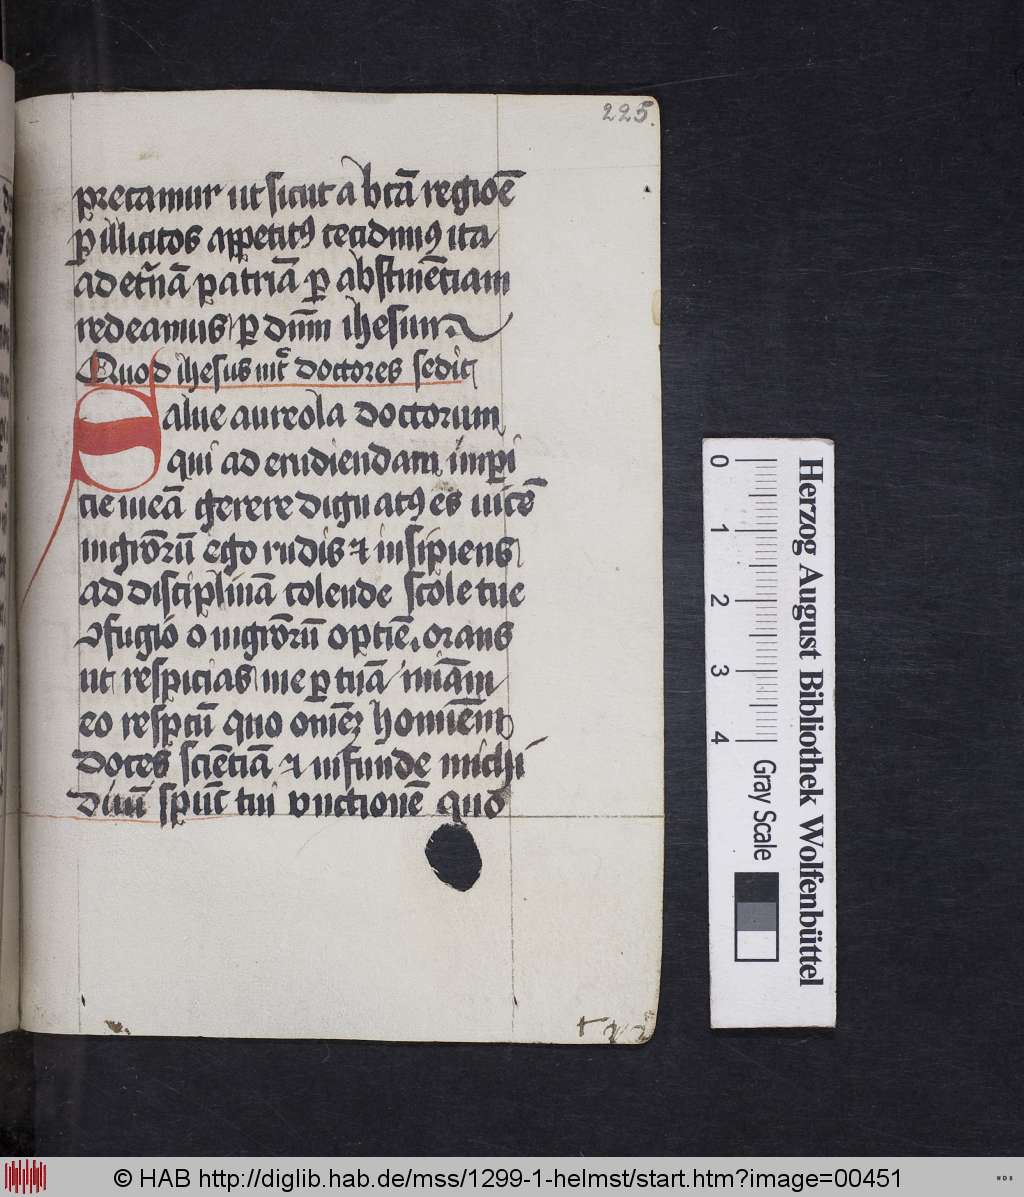 225.
precamur ut sicut a btā regiōē
ꝑ illicitos appetitꝯ cecidimꝯ ita
ad et̄nā patriā ꝑ abstinēciam
redeamus ꝑ dn̄m ihesum.
Quod ihesus int̄ doctores sedit
Salue aureola doctorum
qui ad erudiendam imp̄i
cie meā gerere dignatꝯ es uicē
mgrōrū ego rudis ⁊ insipiens
ad disciplinā colende scole tue
ꝯfugio o mgrōrū optīe. orans
ut respicias me ꝑ tuā miām
eo resp̄tū quo omēꝫ hominē
doces sciētiā ⁊ infunde michi
diuī sp̄us tui vnctionē quo
Herzog August Bibliothek Wolfenbüttel
0 1 2 3 4 Gray Scale
© HAB http://diglib.hab.de/mss/1299-1-helmst/start.htm?image=00451